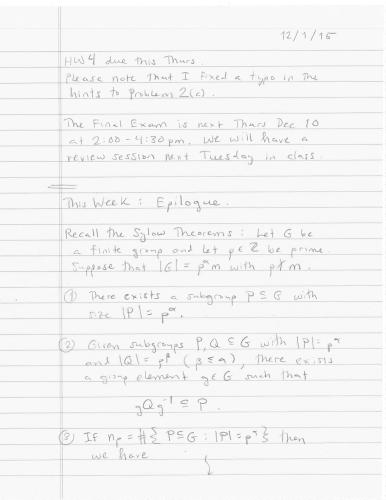 12/1/15
HW4 due this Thurs.
Please note that I fixed a typo in the
hints to Problem 2(c).
The Final Exam is next Thurs Dec 10
at 2:00 - 4:30 pm. We will have a
review session next Tuesday in class.
This Week : Epilogue.
Recall the Sylow Theorems : Let G be
a finite group and let p ∈ ℤ be prime.
Suppose that |G| = p^α m with p∤m.
① There exists a subgroup P ⊆ G with
size |P| = p^α.
② Given subgroups P, Q ⊆ G with |P| = p^α
and |Q| = p^β (β ≤ α), there exists
a group element g ∈ G such that
gQg⁻¹ ⊆ P.
③ If nₚ = #{ P ⊆ G : |P| = p^α } then
we have